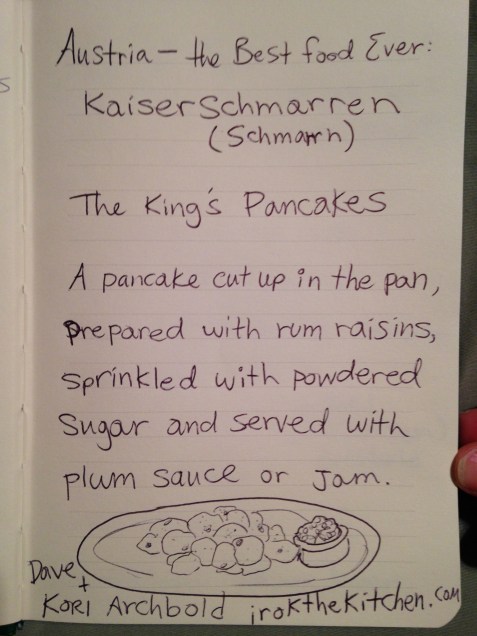 Austria - the Best food Ever:
Kaiserschmarren
(Schmarrn)
The King's Pancakes
A pancake cut up in the pan,
prepared with rum raisins,
sprinkled with powdered
sugar and served with
plum sauce or jam.
Dave +
Kori Archbold irokthekitchen.com